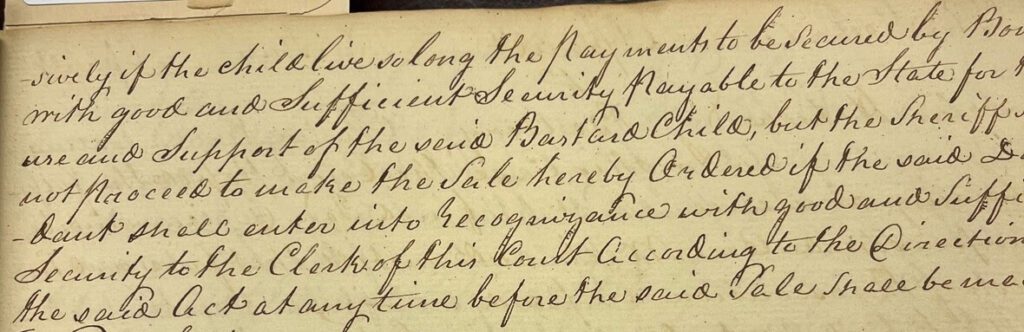 -sively if the child live so long the Payments to be Secured by Bon
with good and Sufficient Security Payable to the State for
use and Support of the said Bastard Child, but the Sheriff s
not Proceed to make the Sale hereby Ordered if the said De
-dant shall enter into Recognizance with good and Suffi
Security to the Clerk of this Court According to the Direction
the said Act at any time before the said Sale Shall be ma